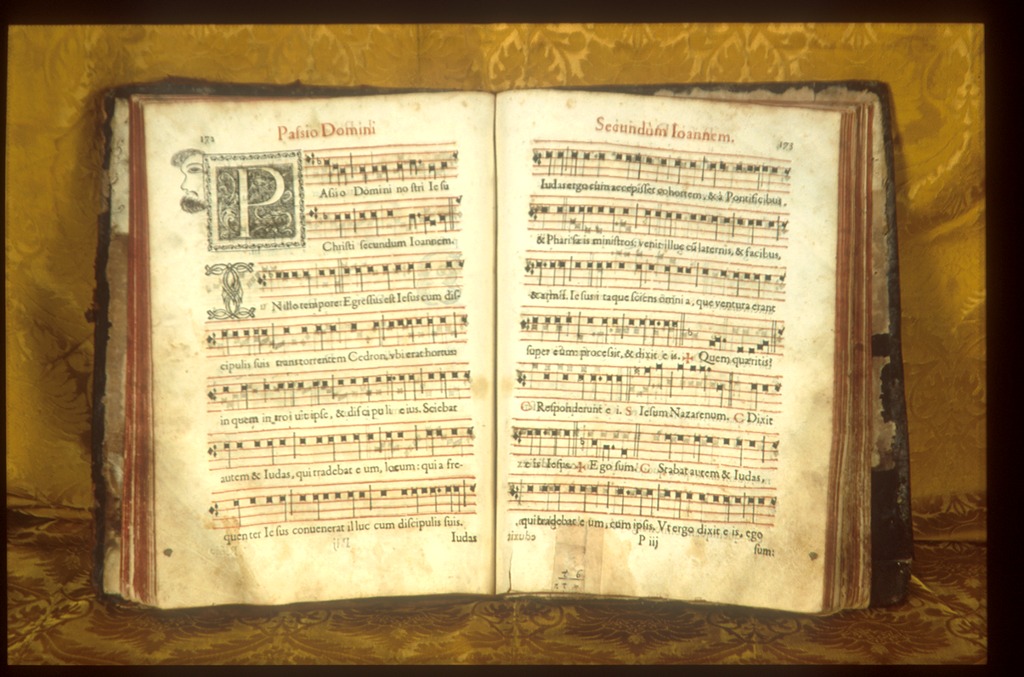 172
Passio Domini
P
Assio Domini nostri Iesu
Christi secundum Ioannem.
I
N illo tempore: Egressus est Iesus cum dis-
cipulis suis trans torrentem Cedron, vbi erat hortus
in quem introiuit ipse, & discipuli eius. Sciebat
autem & Iudas, qui tradebat eum, locum: quia fre-
quenter Iesus conuenerat illuc cum discipulis suis.
Iudas
Secundùm Ioannem.
173
Iudas ergo cùm accepisset cohortem, & à Pontificibus,
& Pharisæis ministros: venit illuc cũ laternis, & facibus,
& armis. Iesus itaque sciens omnia, que ventura erant
super eum: processit, & dixit eis. ✠ Quem quæritis?
C Responderunt ei. S Iesum Nazarenum. C Dixit
eis Iesus. ✠ Ego sum. C Stabat autem & Iudas,
qui tradebat eum, cum ipsis. Vt ergo dixit eis, ego
P iij
sum: